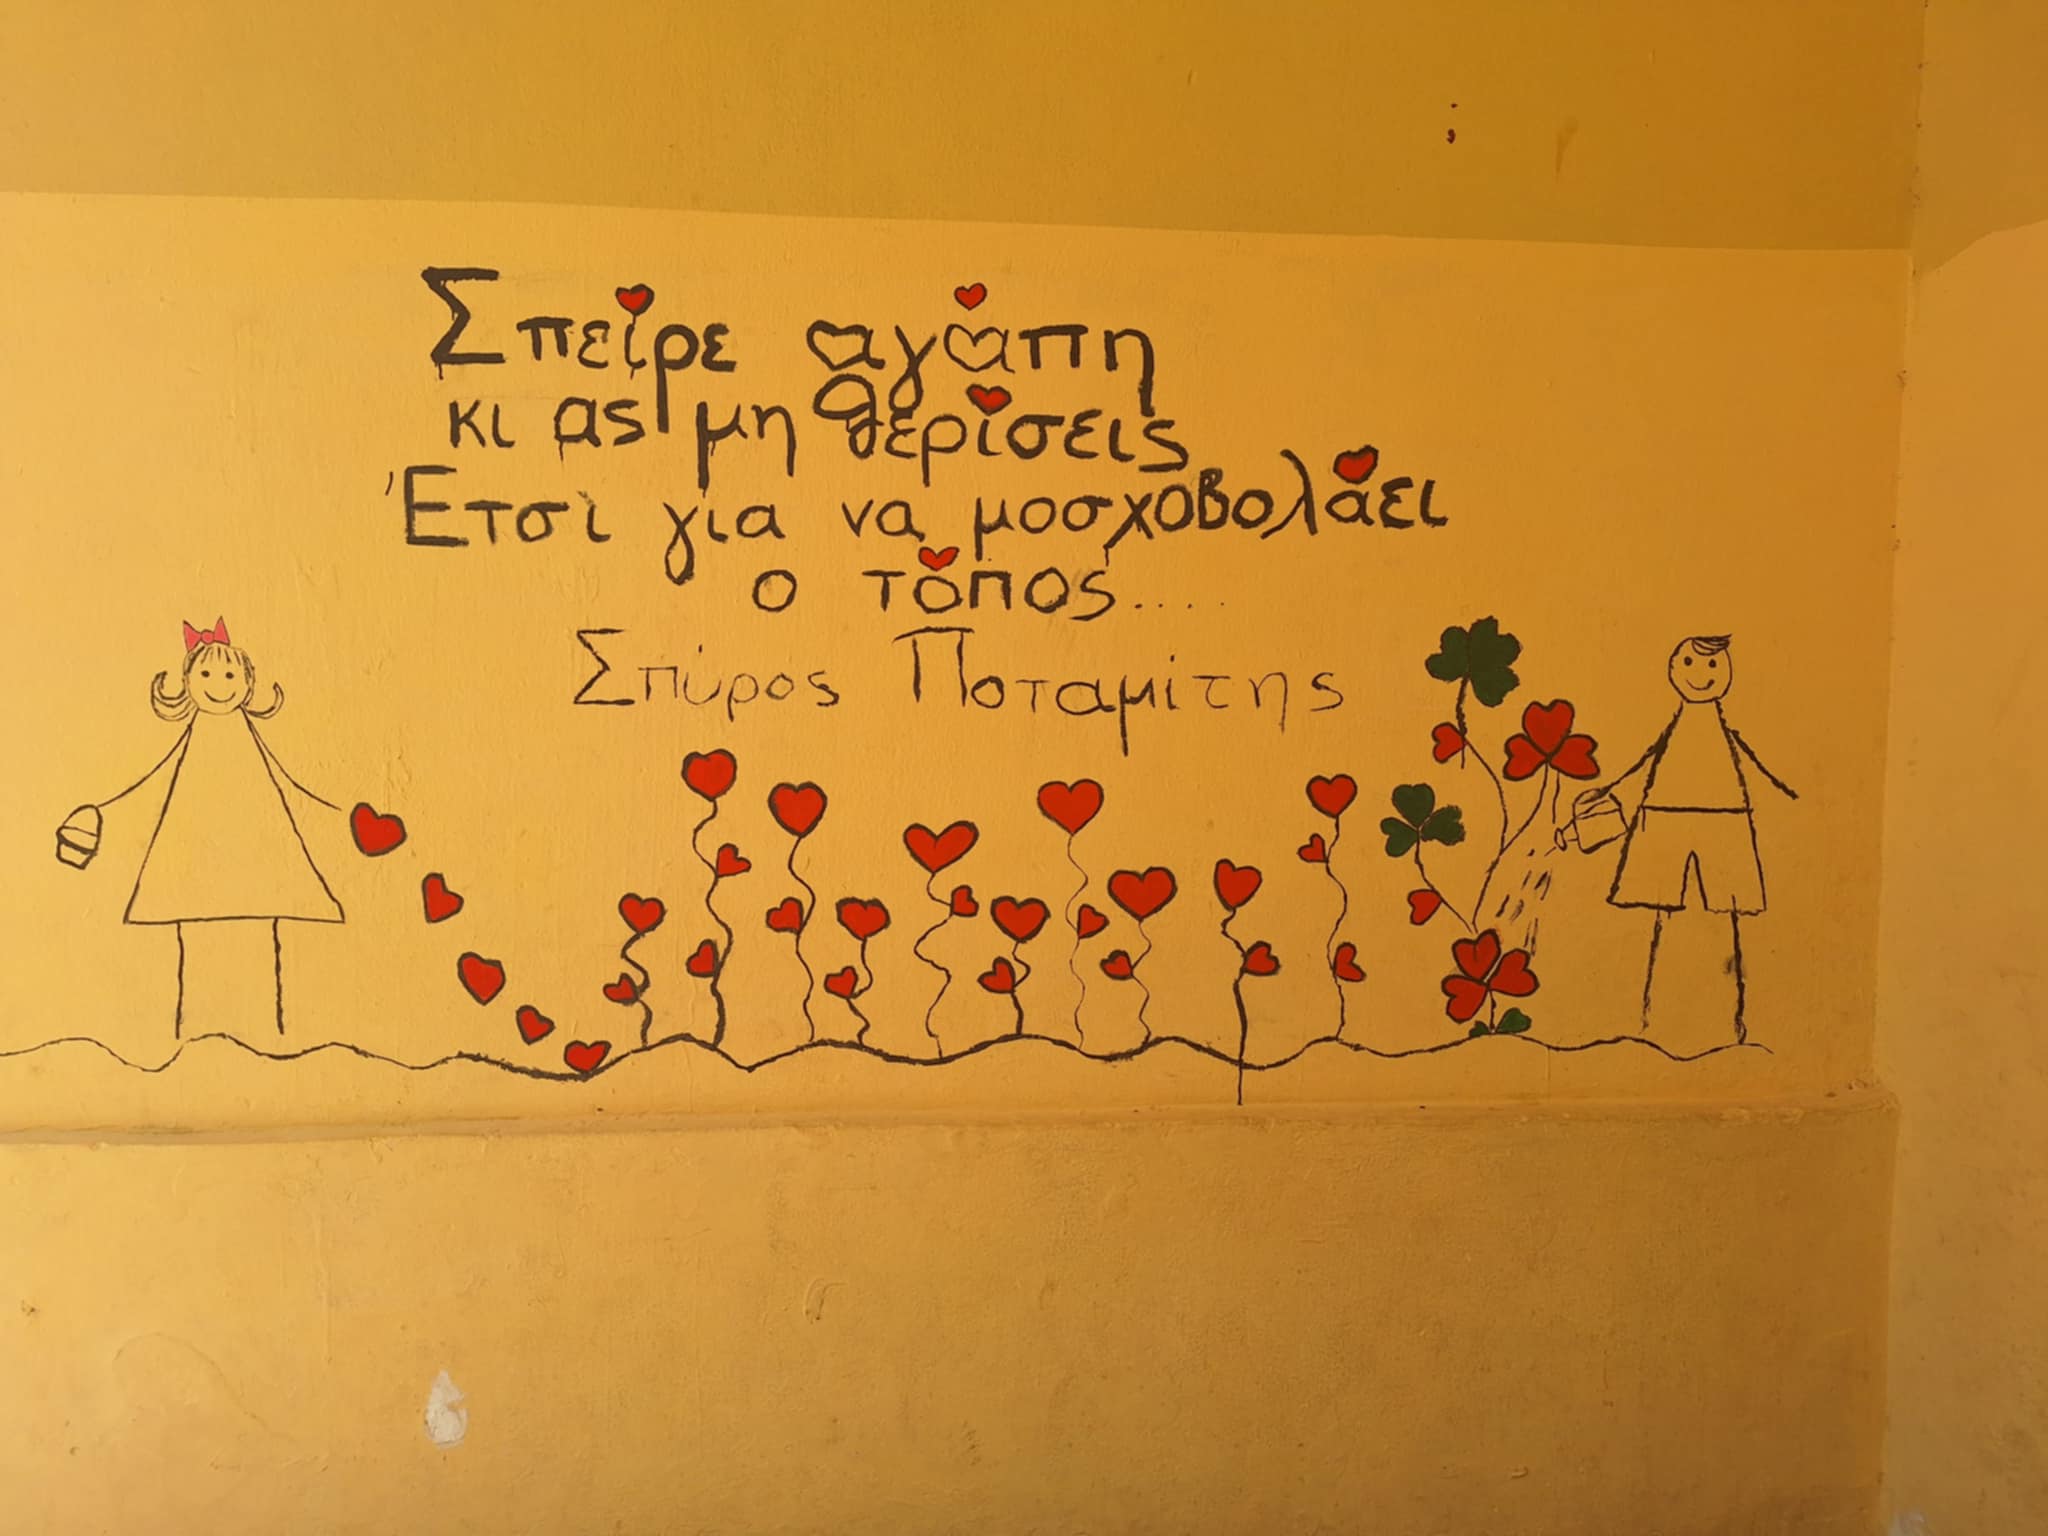 Σπείρε αγάπη
κι ας μη θερίσεις
Έτσι για να μοσχοβολάει
ο τόπος....
Σπύρος Ποταμίτης